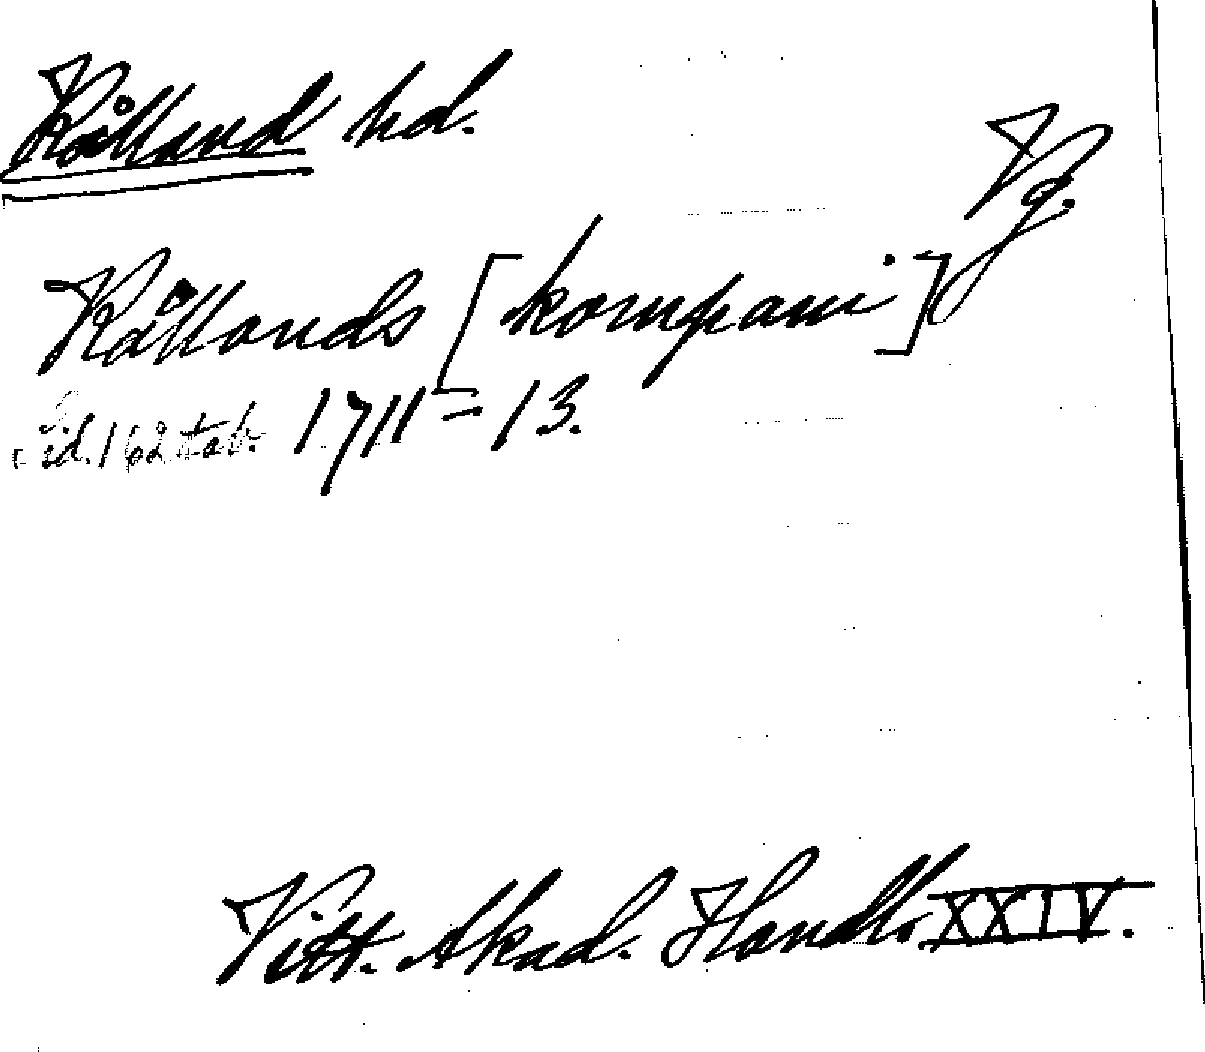 Kålland hd.
Vg.
Kållands [kompani]
Sid. 162 tab. 1711-13.
Vitt. Akad. Handl. XXIV.